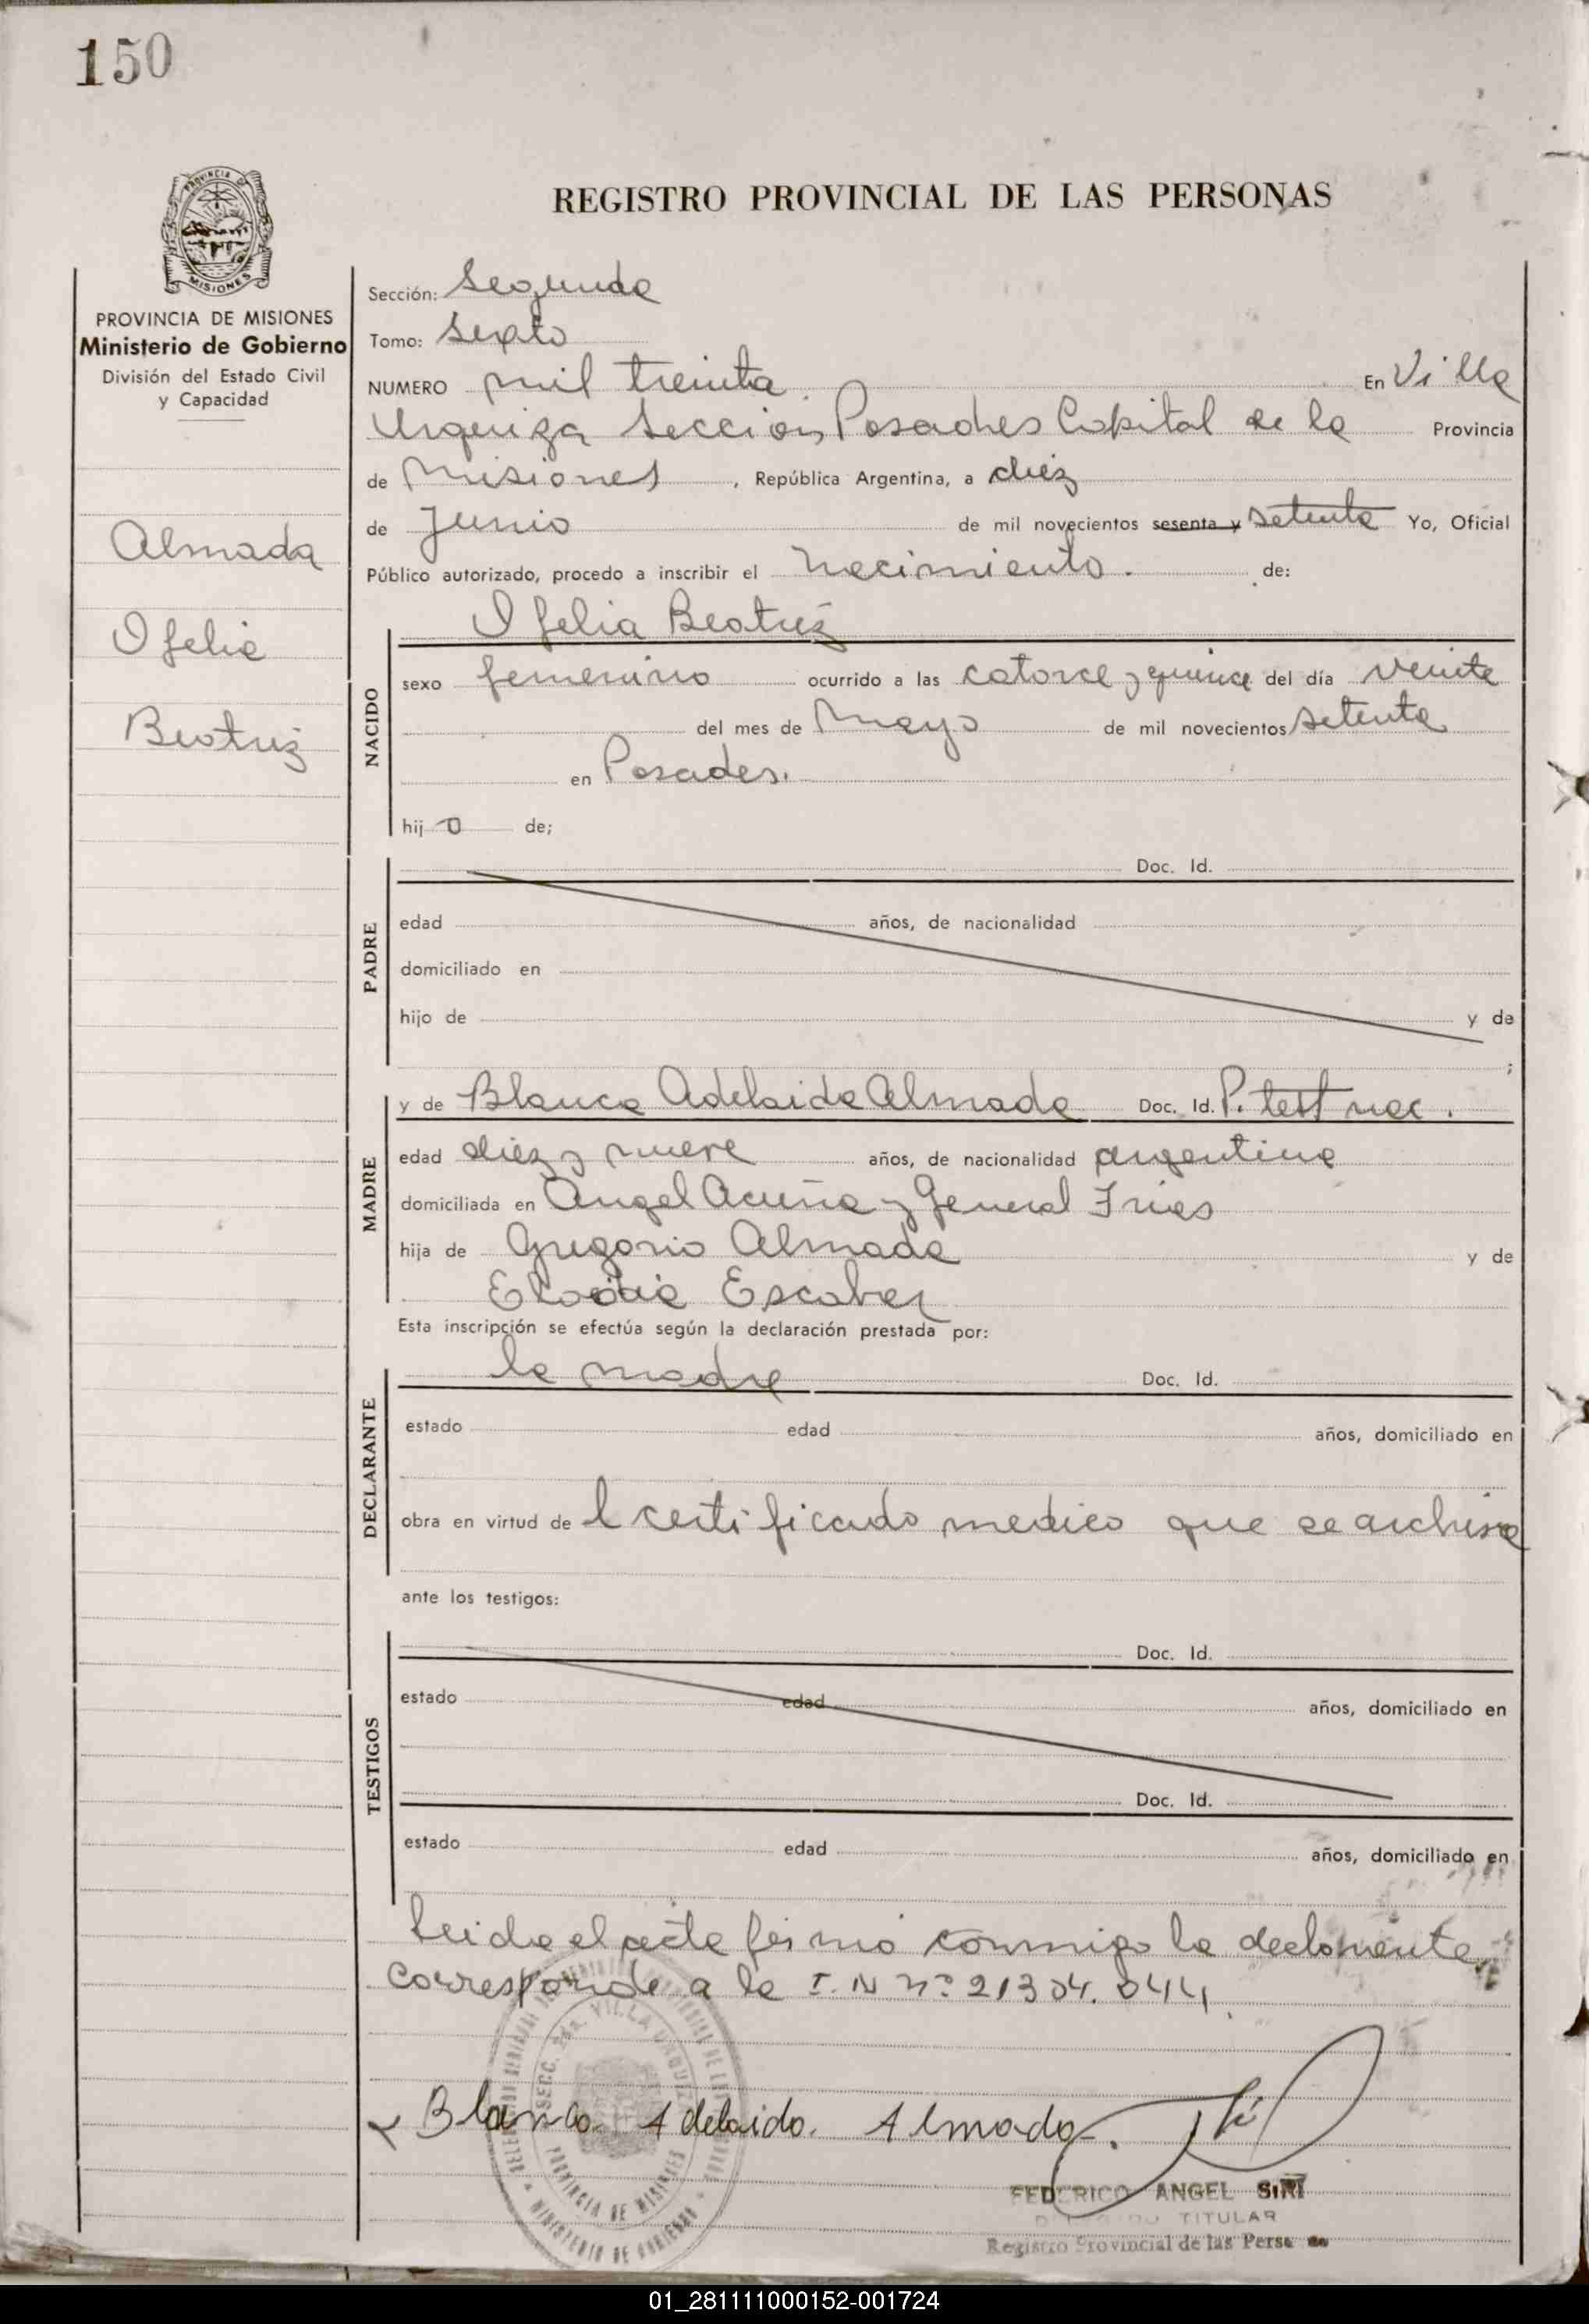 150
REGISTRO PROVINCIAL DE LAS PERSONAS
PROVINCIA DE MISIONES
Ministerio de Gobierno
División del Estado Civil
y Capacidad
Almada
Ofelia
Beatriz
Sección: Segunda
Tomo: Sexto
NUMERO mil treinta En Villa
Urquiza Sección Posadas Capital de la Provincia
de Misiones, República Argentina, a diez
de Junio de mil novecientos sesenta y setenta Yo, Oficial
Público autorizado, procedo a inscribir el nacimiento. de:
NACIDO
Ofelia Beatriz
sexo femenino ocurrido a las catorce y quince del día veinte
del mes de Mayo de mil novecientos setenta
en Posadas.
hij o de;
PADRE
Doc. Id.
edad años, de nacionalidad
domiciliado en
hijo de y de
;
MADRE
y de Blanca Adelaida Almada Doc. Id. P. test nac.
edad diez y nueve años, de nacionalidad argentina
domiciliada en Angel Acuña y General Frias
hija de Gregorio Almada y de
Elodia Escobar
Esta inscripción se efectúa según la declaración prestada por:
DECLARANTE
la madre Doc. Id.
estado edad años, domiciliado en
obra en virtud de l certificado medico que se archiva
ante los testigos:
TESTIGOS
Doc. Id.
estado edad años, domiciliado en
Doc. Id.
estado edad años, domiciliado en
Leida el acta firmó conmigo la declarante.
corresponde a la I. N nº 21304.044
Blanca Adelaida. Almada.
SECC. 2da. VILLA URQUIZA
PROVINCIA DE MISIONES
MINISTERIO DE GOBIERNO
FEDERICO ANGEL SIRI
TITULAR
Registro Provincial de las Perso
01_281111000152-001724